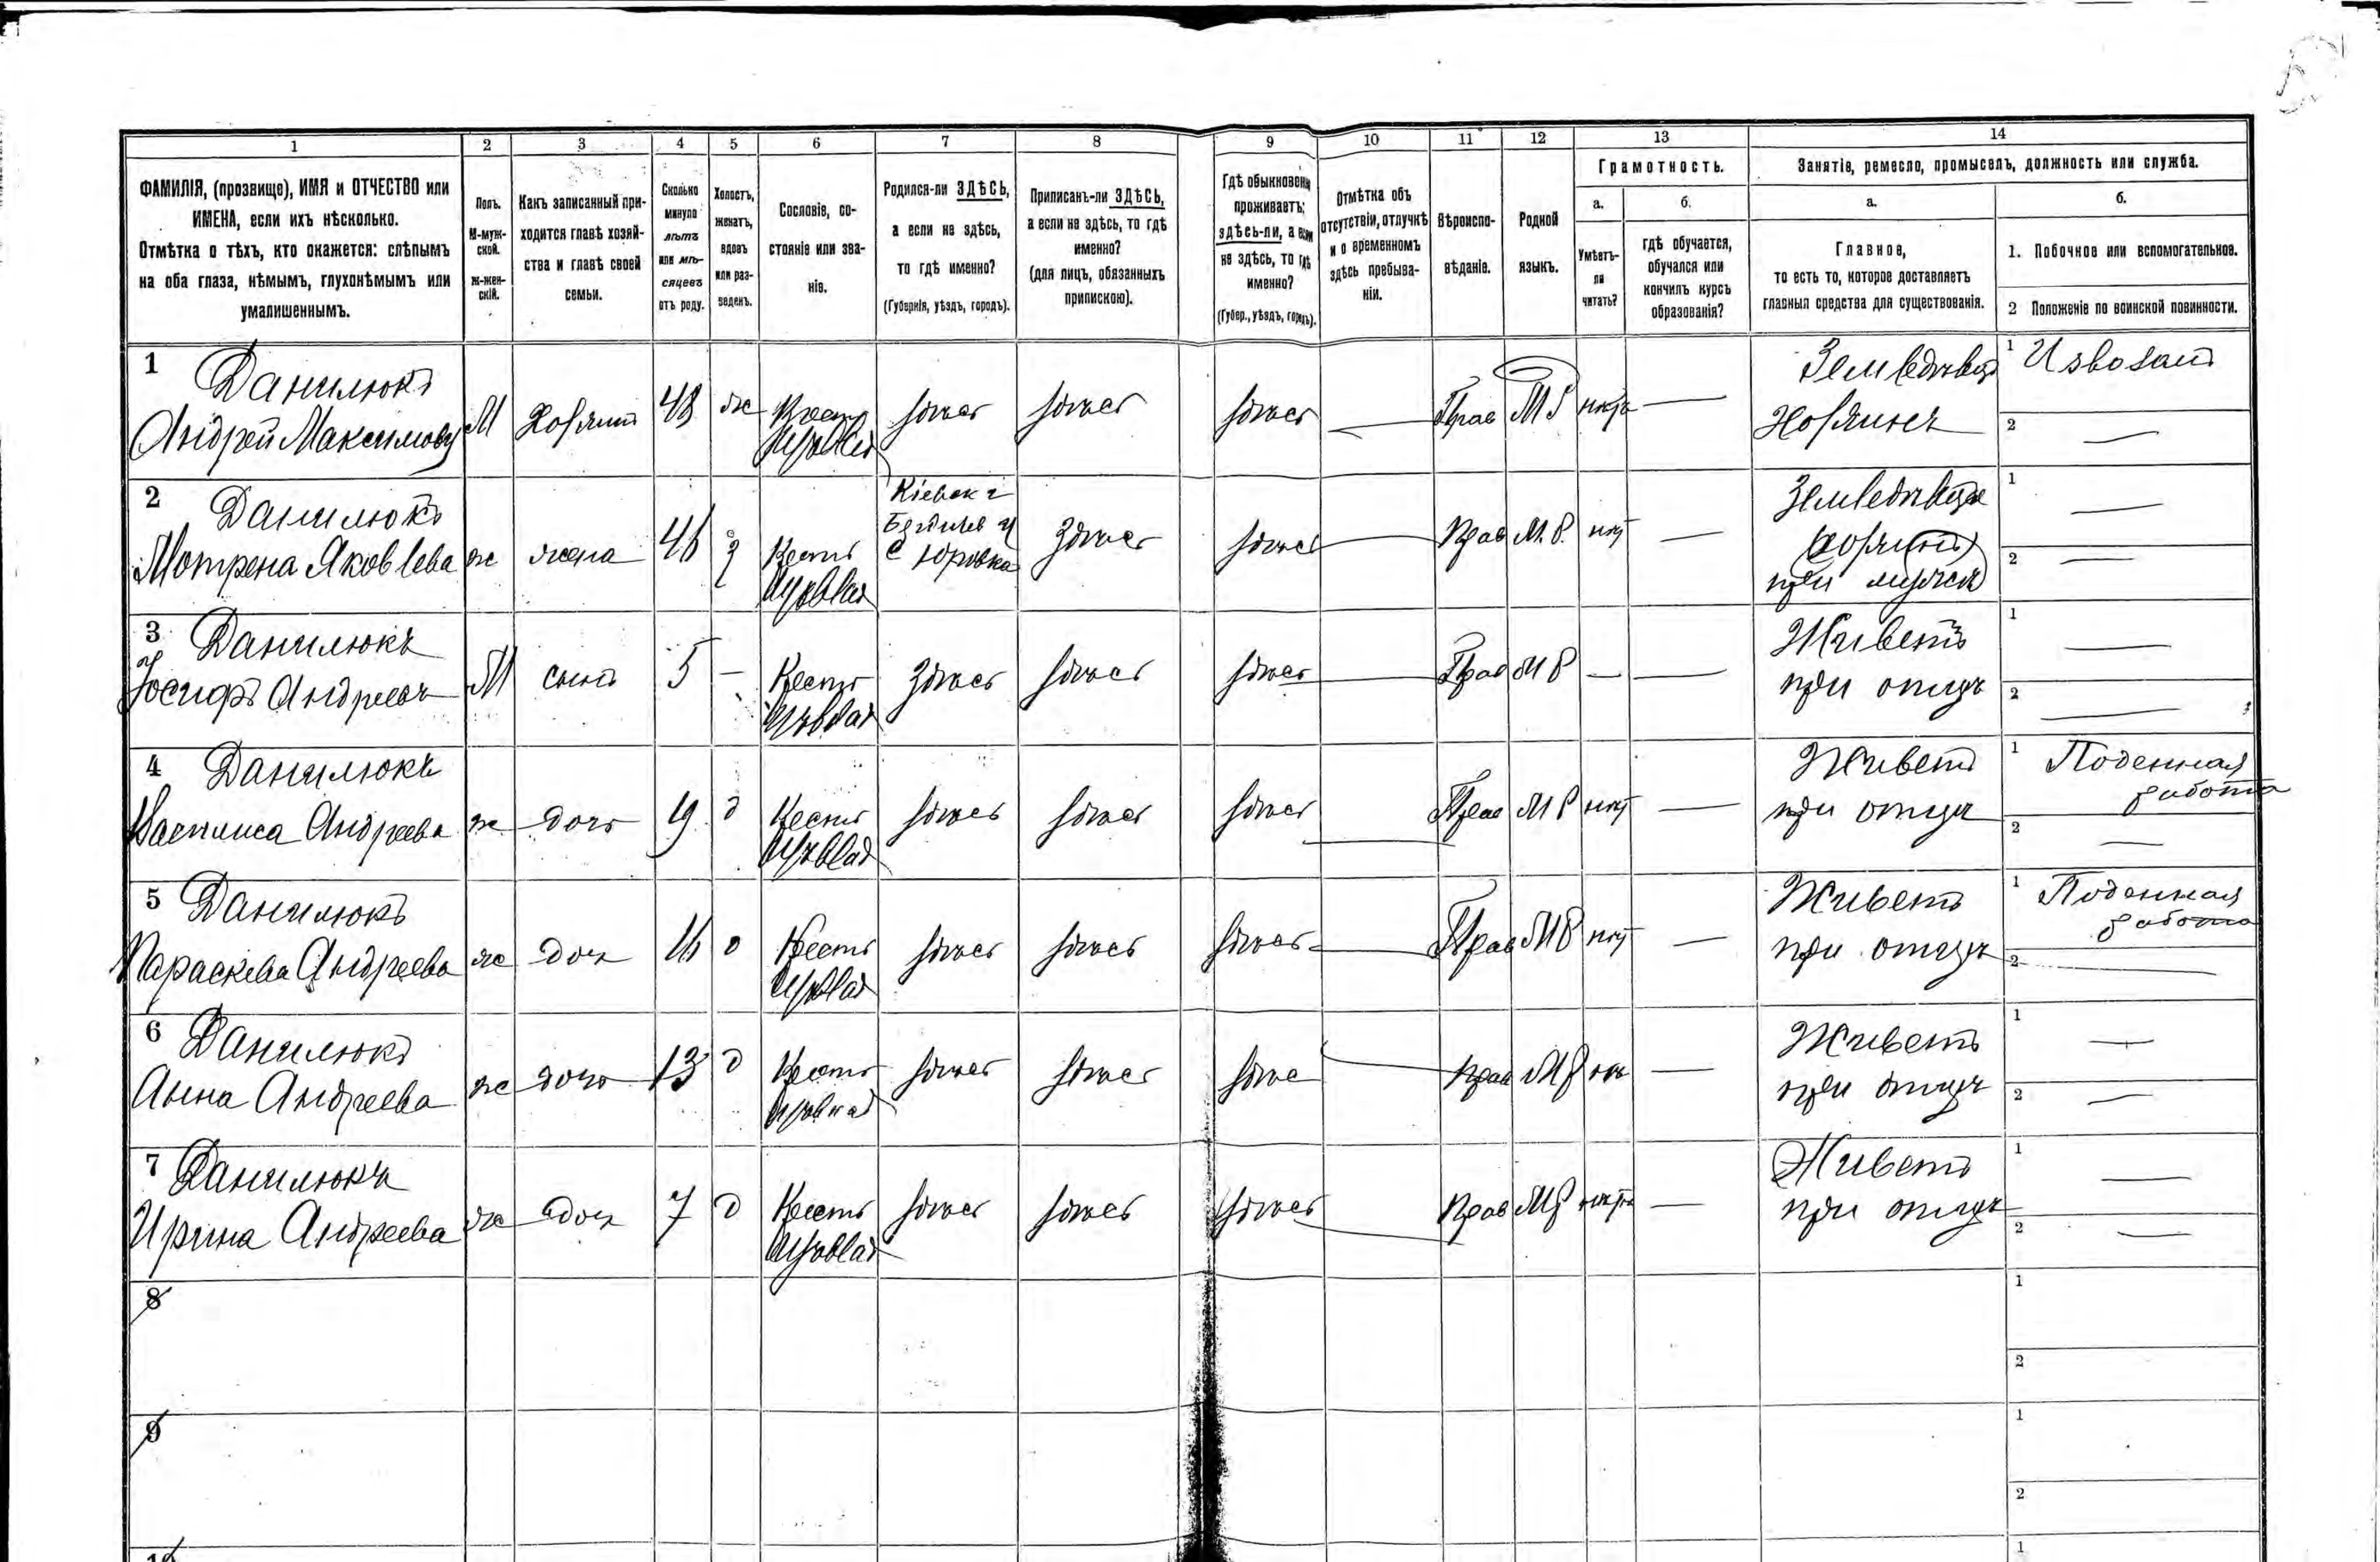 1 2 3 4 5 6 7 8 9 10 11 12 13 14
ФАМИЛІЯ, (прозвище), ИМЯ и ОТЧЕСТВО или
ИМЕНА, если ихъ нѣсколько.
Отмѣтка о тѣхъ, кто окажется: слѣпымъ
на оба глаза, нѣмымъ, глухонѣмымъ или
умалишеннымъ.
Полъ.
М-муж-
ской.
ж-жен-
скій.
Какъ записанный при-
ходится главѣ хозяй-
ства и главѣ своей
семьи.
Сколько
минуло
лѣтъ
или мѣ-
сяцевъ
отъ роду.
Холостъ,
женатъ,
вдовъ
или раз-
веденъ.
Сословіе, со-
стояніе или зва-
ніе.
Родился-ли ЗДѢСЬ,
а если не здѣсь,
то гдѣ именно?
(Губернія, уѣздъ, городъ).
Приписанъ-ли ЗДѢСЬ,
а если не здѣсь, то гдѣ
именно?
(для лицъ, обязанныхъ
припискою).
Гдѣ обыкновенно
проживаетъ:
здѣсь-ли, а если
не здѣсь, то гдѣ
именно?
(Губер., уѣздъ, городъ).
Отмѣтка объ
отсутствіи, отлучкѣ
и о временномъ
здѣсь пребыва-
ніи.
Вѣроиспо-
вѣданіе.
Родной
языкъ.
Грамотность.
а.
Умѣетъ-
ли
читать?
б.
гдѣ обучается,
обучался или
кончилъ курсъ
образованія?
Занятіе, ремесло, промыселъ, должность или служба.
а.
Главное,
то есть то, которое доставляетъ
главныя средства для существованія.
б.
1. Побочное или вспомогательное.
2 Положеніе по воинской повинности.
1 Данилюкъ
Андрей Максимовъ М 48 ж здѣсь здѣсь здѣсь — Прав МР —
1
2 —
2 Данилюкъ
Мотрена Яковлева ж жена з Крестъ
Кіевск г
Бердичев у
с Юровка
здѣсь здѣсь — Прав М.Р. нѣт —
при мужѣ
1 —
2 —
3 Данилюкъ
Іосифъ Андреевъ М сынъ 5 — Крестъ здѣсь здѣсь здѣсь — Прав МР — — Живетъ
при отцѣ
1 —
2 —
4 Данилюкъ
Василиса Андреева ж дочь 19 д Крестъ здѣсь здѣсь здѣсь — Прав МР нѣт — Живетъ
при отцѣ
1 Поденная
работа
2 —
5 Данилюкъ
Параскева Андреева ж доч 16 д Крестъ здѣсь здѣсь здѣсь — Прав МР нѣт — Живетъ
при отцѣ
1 Поденная
работа
2 —
6 Данилюкъ
Анна Андреева ж дочь 13 д Крестъ здѣсь здѣсь здѣсь — Прав МР — Живетъ
при отцѣ
1 —
2 —
7 Данилюкъ
Ирина Андреева ж доч 7 д Крестъ здѣсь здѣсь здѣсь — Прав МР — Живетъ
при отцѣ
1 —
2 —
8
1
2
9
1
2
10
1